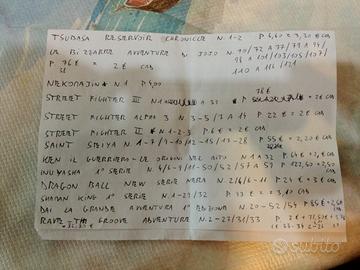 TSUBASA RESERVOIR CHRONICLE N. 1-2 P 6,60 = 3,30 € CAD
LE BIZZARRE AVVENTURE DI JOJO N. 70/72 A 77/79 A 94/
P 76 € = 2 € CAD 98 A 101/103/105/107/
110 A 116/121
NEKOMAJIN N° 1 P 4,00
78 €
STREET FIGHTER III N. 1 A 31 = 2 € CAD
STREET FIGHTER ALPHA 3 N. 3-5/7 A 14 P 22 € = 2 € CAD
STREET FIGHTER II N. 1-2-3 P 6 € = 2 € CAD
SAINT SEIYA N. 1-7/9-10/12-15/17-28 P 55 € = 2,20 € CAD
KEN IL GUERRIERO - LE ORIGINI DEL MITO N. 1 A 32 P 64 € = 2 € CAD
INUYASHA 1° SERIE N. 4/6-9/11-50/52 A 57 A 59 P 122,50 = 2,50 CAD
DRAGON BALL NEW SERIE NERA N. 2/4/6-11 P 24 € = 3 € CAD
SHAMAN KING 1° SERIE N. 1-29/32
DAI LA GRANDE AVVENTURA 1° EDIZIONE N. 20-52/54 P 85 € = 2,50 CAD
RAVE - THE GROOVE ADVENTURE N. 2-27/31/33
Subito